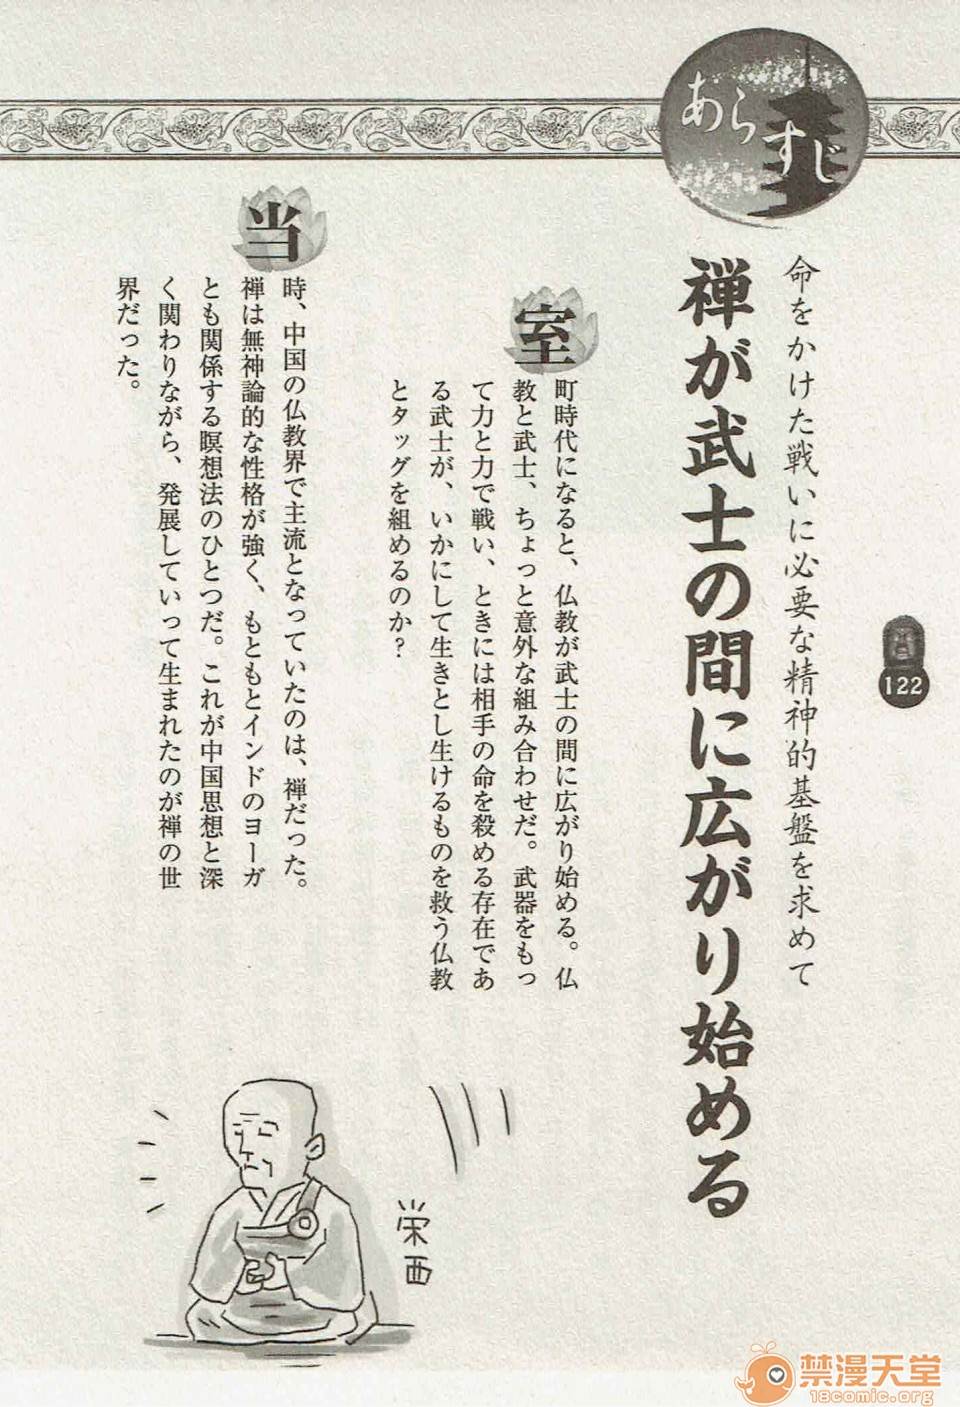 あらすじ
122
命をかけた戦いに必要な精神的基盤を求めて
禅が武士の間に広がり始める
室
町時代になると、仏教が武士の間に広がり始める。仏
教と武士、ちょっと意外な組み合わせだ。武器をもっ
て力と力で戦い、ときには相手の命を殺める存在であ
る武士が、いかにして生きとし生けるものを救う仏教
とタッグを組めるのか?
当
時、中国の仏教界で主流となっていたのは、禅だった。
禅は無神論的な性格が強く、もともとインドのヨーガ
とも関係する瞑想法のひとつだ。これが中国思想と深
く関わりながら、発展していって生まれたのが禅の世
界だった。
栄西
禁漫天堂
18comic.org